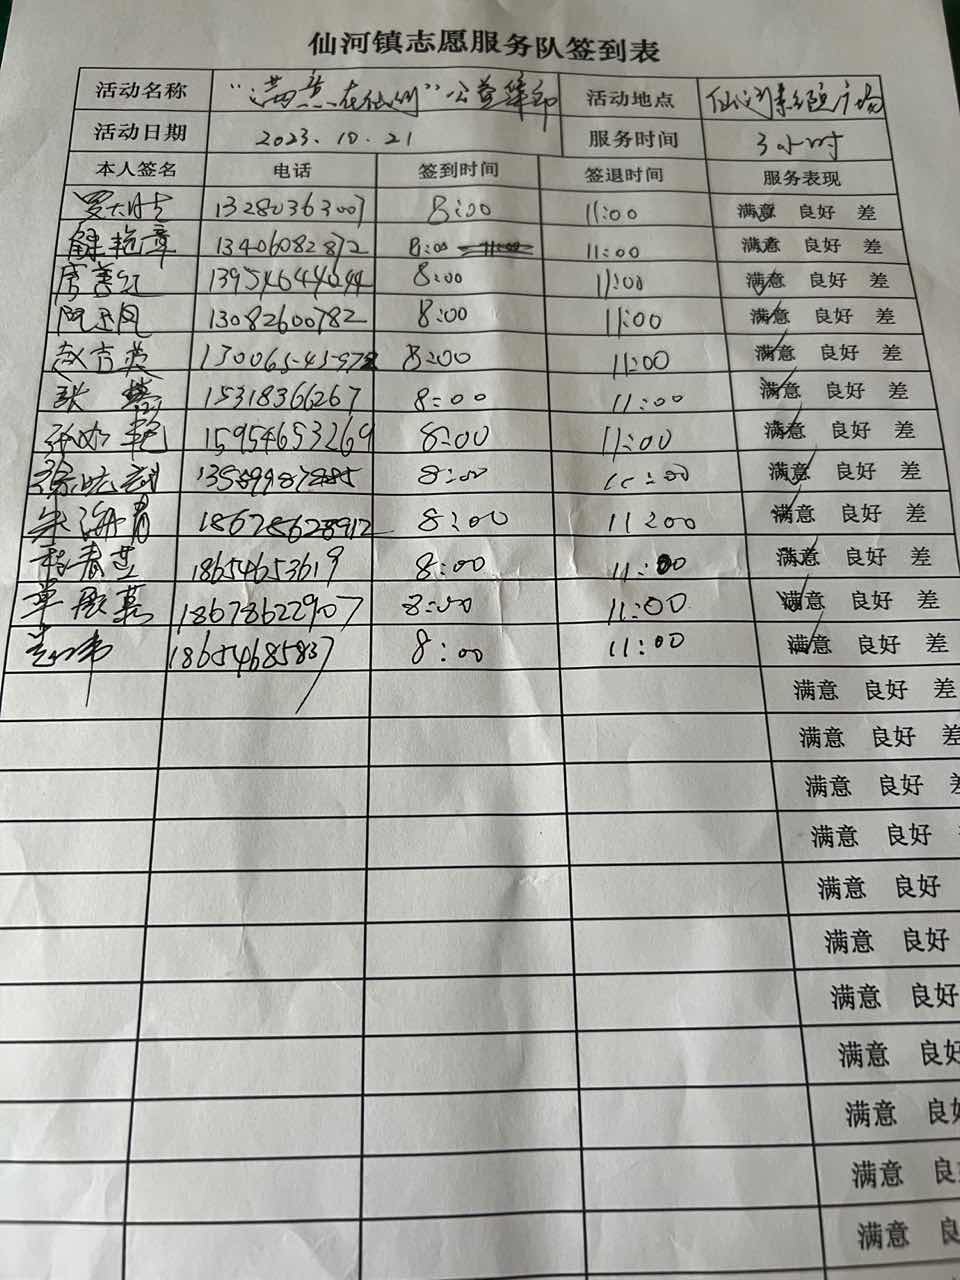 仙河镇志愿服务队签到表
活动名称 "满意在仙河"公益 活动地点 仙河 广场
活动日期 2023.10.21 服务时间 3小时
本人签名 电话 签到时间 签退时间 服务表现
13280363007 8:00 11:00 满意 良好 差
解艳章 13406082872 8:00 11:00 满意 良好 差
13954644644 8:00 11:00 满意 良好 差
13082600782 8:00 11:00 满意 良好 差
赵吉英 8:00 11:00 满意 良好 差
张 15318366267 8:00 11:00 满意 良好 差
15954653269 8:00 11:00 满意 良好 差
徐 8:00 11:00 满意 良好 差
宋海青 18678628912 8:00 11:00 满意 良好 差
程春芝 18654653619 8:00 11:00 满意 良好 差
18678622907 8:00 11:00 满意 良好 差
18654685837 8:00 11:00 满意 良好 差
满意 良好 差
满意 良好 差
满意 良好 差
满意 良好
满意 良好
满意 良好
满意 良好
满意 良好
满意 良
满意 良
满意 良